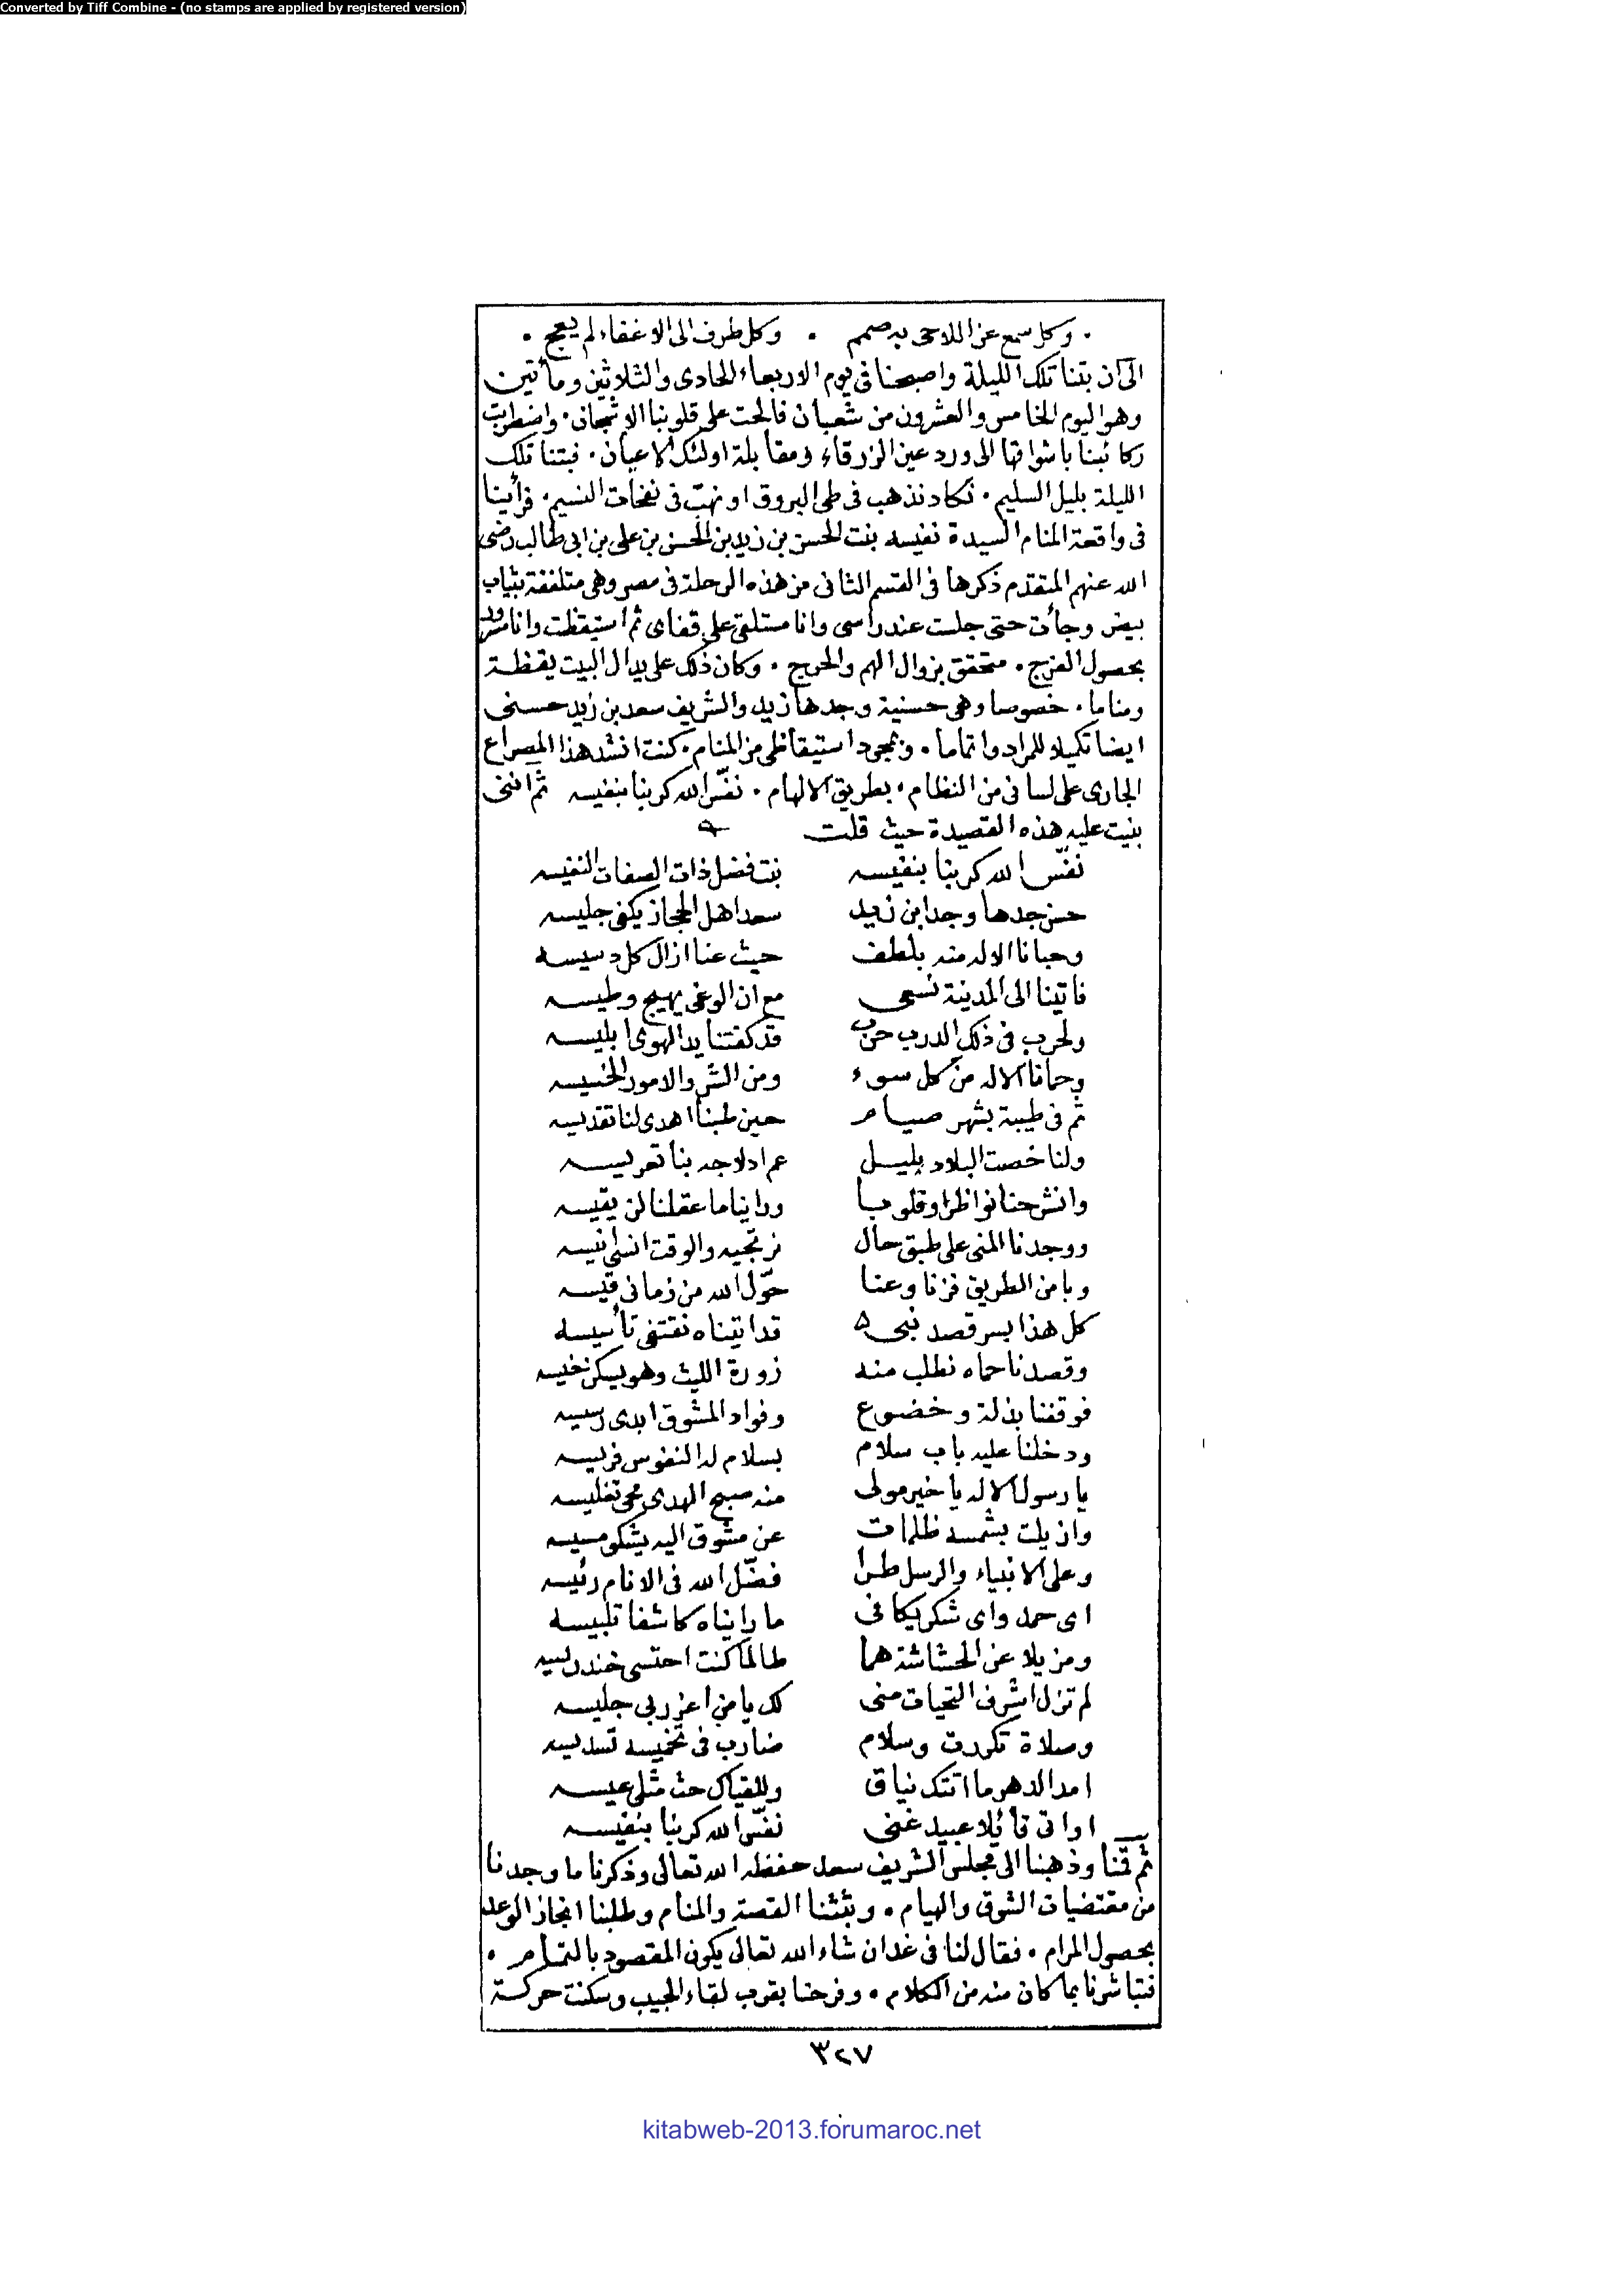 Converted by Tiff Combine - (no stamps are applied by registered version)
. وكل سمع عن اللاحى به صمم . وكل طرف الى الاغفاء لم يعج .
الى ان بتنا تلك الليلة واصبحنا فى يوم الاربعاء الحادى والثلاثين ومأتين
وهو اليوم الخامس والعشرون من شعبان فالحت على قلوبنا الاشجان . واضطربت
ركائبنا باشواقها الى ورد عين الزرقاء ومقابلة اولئك الاعيان . فبتنا تلك
الليلة بليل السليم . نكاد نذهب فى طى البروق او نهب فى نفحات النسيم . فرأينا
فى واقعة المنام السيدة نفيسه بنت الحسن بن زيد بن الحسن بن على بن ابى طالب رضى
الله عنهم المتقدم ذكرها فى القسم الثانى من هذه الرحلة فى مصر وهى متلففة بثياب
بيض وجأت حتى جلست عند راسى وانا مستلقى على قفاى ثم استيقظت وانا مسرور
بحصول الفرج . متحقق بزوال الهم والحرج . وكان ذلك على يد ال البيت يقظة
ومناما . خصوصا وهى حسنية وجدها زيد والشريف سعد بن زيد حسنى
ايضا تكميلا للمراد واتماما . وبمجرد استيقاظى من المنام . كنت انشد هذا المصراع
الجارى على لسانى من النظام . بطريق الالهام . نفّس الله كربنا بنفيسه ثم اننى
بنيت عليه هذه القصيدة حيث قلت
نفّس الله كربنا بنفيسه بنت فضل ذات الصفات النفيسه
حسن جدها وجد ابن زيد سعد اهل الحجاز يكفى جليسه
وحبانا الاله منه بلطف حيث عنا ازال كل دسيسه
فاتينا الى المدينة نسعى مع ان الوغى يهيج وطيسه
ولحرب فى ذلك الدرب حرب قد كفتنا يد الهوى ابليسه
وحمانا الاله من كل سوء ومن الشر والامور الخسيسه
ثم فى طيبة بشهر صيام حين طبنا اهدى لنا تقديسه
ولنا خصت البلاد بليل عم ادلاجه بنا تعريسه
وانشرحنا نواظرا وقلوبا وراينا ما عقلنا لن يقيسه
ووجدنا المنى على طبق حال نرتجيه والوقت انسى انيسه
وبامن الطريق فزنا وعنا حوّل الله من زمانى قيسه
كل هذا بسر قصد نبى قد اتيناه نقتفى تأسيسه
وقصدنا حماه نطلب منه زورة الليث وهو يسكن خيسه
فوقفنا بذلة وخضوع وفواد المشوق ابدى رسيسه
ودخلنا عليه باب سلام بسلام له النفوس فريسه
يا رسول الاله يا خير مولى منه صبح الهدى محى تغليسه
وازيلت بشمسه ظلمات عن مشوق اليه يشكو مسيسه
وعلى الانبياء والرسل طرا فضّل الله فى الانام رئيسه
اى حمد واى شكر يكافى ما راينا ه كاشفا تلبيسه
ومزيلا عن الحشاشة هما طالما كنت احتسى خندريسه
لم تزل اشرف التحيات منى لك يا من اعز ربى جليسه
وصلاة تكررت وسلام ضارب فى تخميسه تسديسه
امد الدهر ما اتتك نياق وللقياك حث مثلى عيسه
او اتى قائلا عبيد غنى نفّس الله كربنا بنفيسه
ثم قمنا وذهبنا الى مجلس الشريف سعد حفظه الله تعالى وذكرنا ما وجدنا
من مقتضيات الشوق والهيام . وبثثنا القصة والمنام وطلبنا انجاز الوعد
بحصول المرام . فقال لنا فى غد ان شاء الله تعالى يكون المقصود بالتمام .
فتباشرنا بما كان منه من الكلام . وفرحنا بقرب لقاء الحبيب وسكنت حركة
٣٢٧
kitabweb-2013.forumaroc.net